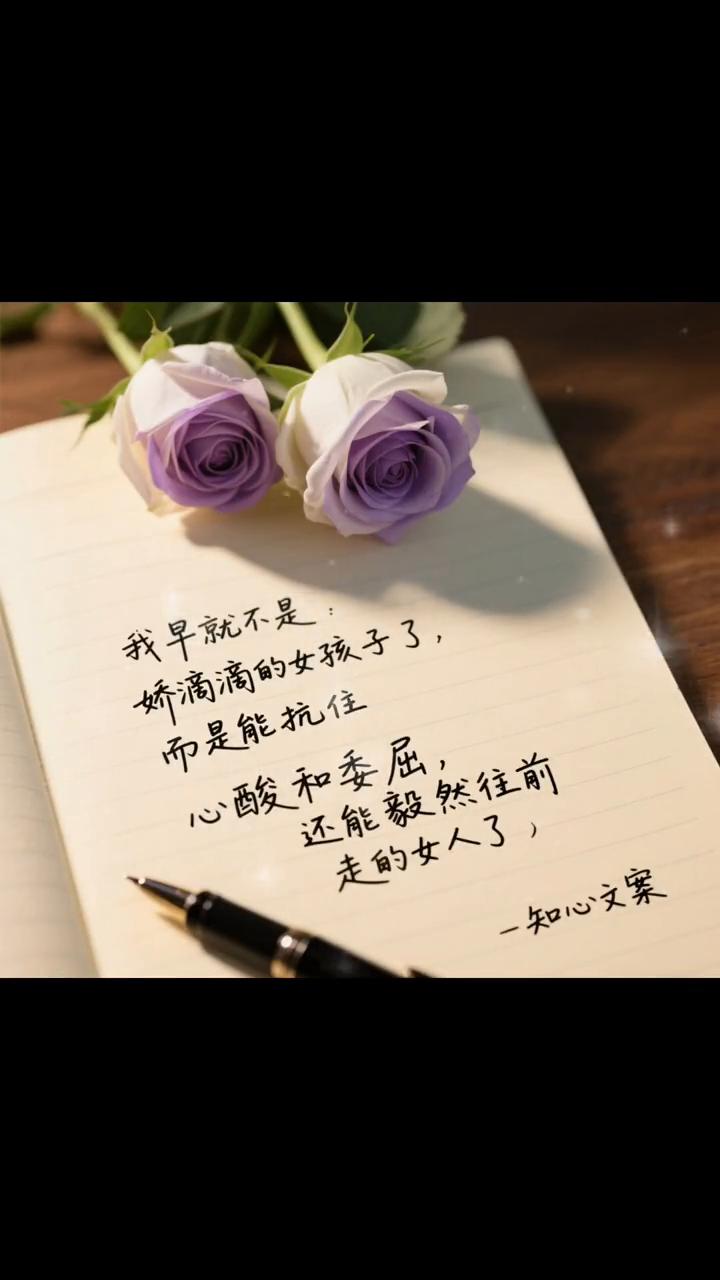 我早就不是：
娇滴滴的女孩子了，
而是能抗住
心酸和委屈，
还能毅然往前
走的女人了，
—知心文案